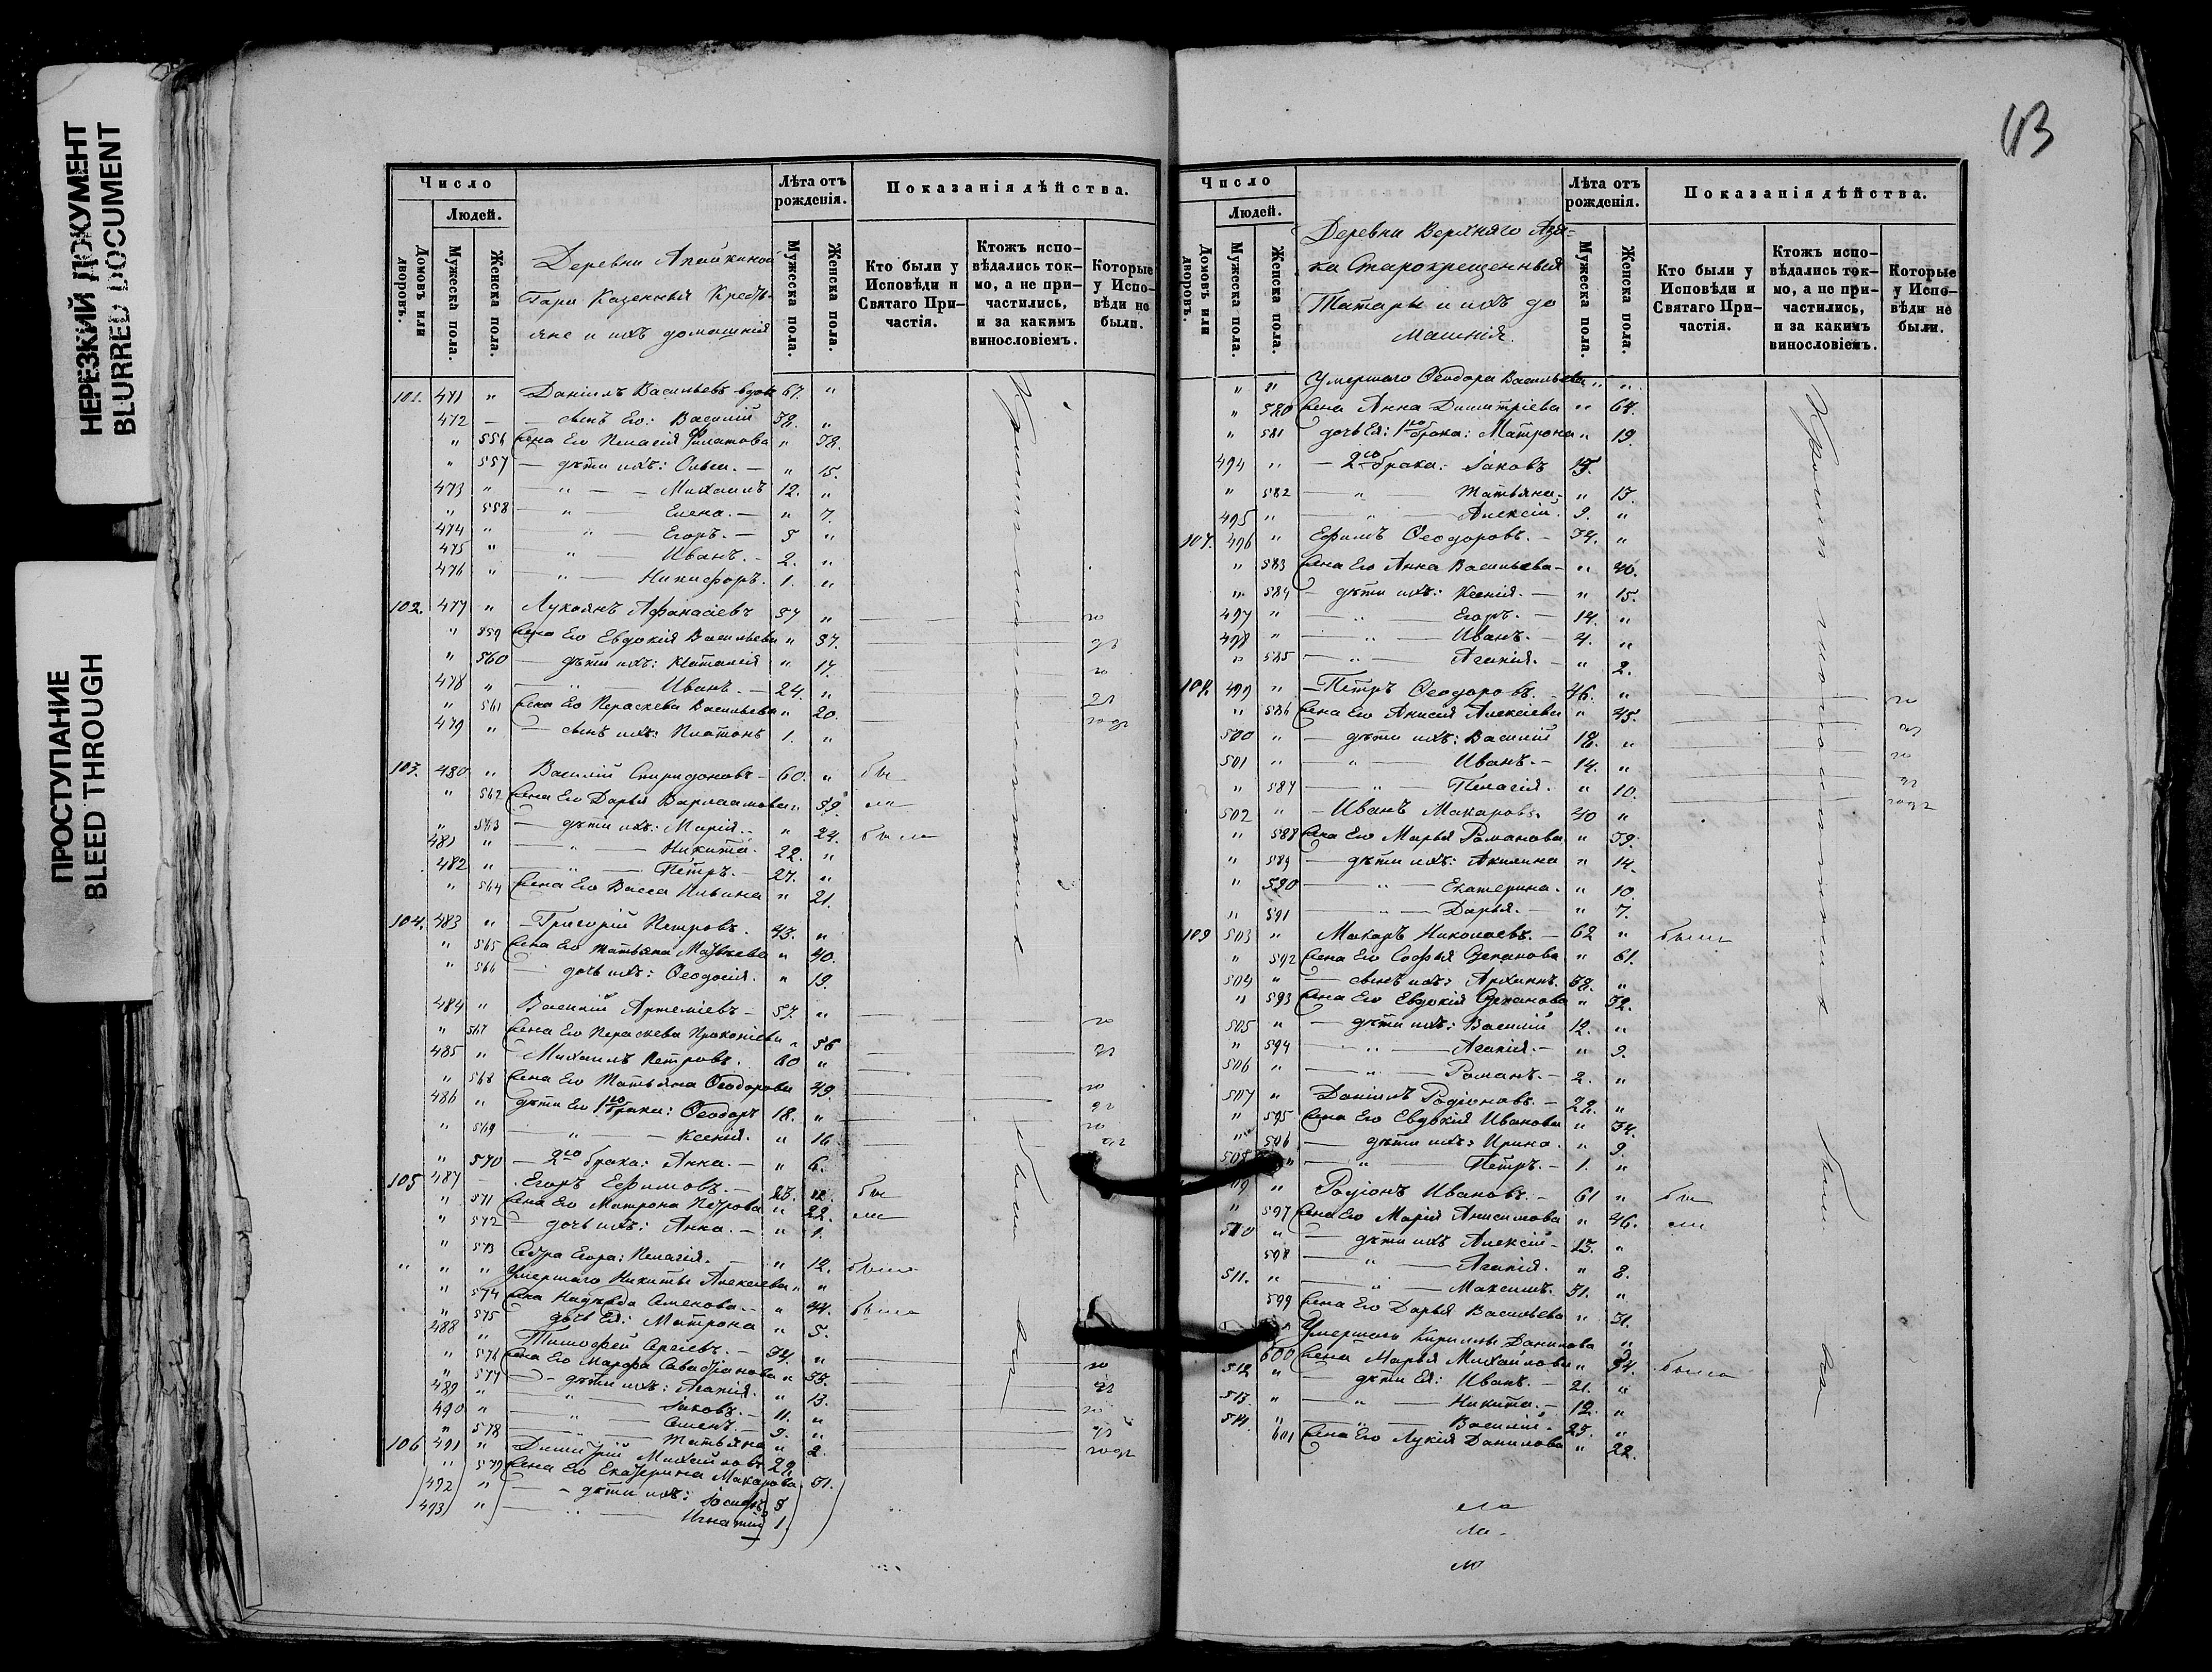 НЕРЕЗКИЙ ДОКУМЕНТ
BLURRED DOCUMENT
ПРОСТУПАНИЕ
BLEED THROUGH
Число
Людей.
Домовъ или дворовъ.
Мужеска пола.
Женска пола.
Деревни Апайкиной
Гари Казенныя Кресть-
яне и ихъ домашнія
Лѣта отъ рожденія.
Мужеска пола.
Женска пола.
Показанія дѣйства.
Кто были у Исповѣди и Святаго При-частія.
Ктожъ испо-вѣдались ток-мо, а не при-частились, и за какимъ винословіемъ.
Которые у Испо-вѣди не были.
101. 471 " Даніилъ Васильевъ вдов 67. "
472 - сынъ Его: Василій 38. "
" 556 Жена Его Пелагія Филатова " 38.
" 557 — дѣти ихъ: Ольга. — " 15.
473 " — " — Михаилъ 12. "
" 558 — " — Елена. — " 7.
474 " " — Егоръ. — 5 "
475 " — " — Иванъ. - 2. "
476 " — " — Никифоръ. 1. "
102. 477 " Лукіянъ Афанасіевъ 57 "
" 559 Жена Его Евдокія Васильева " 37.
" 560 — дѣти ихъ: Наталія " 17.
478 " — " — Иванъ. — 24. "
" 561 Жена Его Параскева Васильева " 20.
479 " — сынъ ихъ: Платонъ 1. "
103. 480 " Василій Спиридоновъ — 60. " бы
" 562 Жена Его Дарья Варлаамова " 59. ли
" 563 — дѣти ихъ: Марія. " 24. была
481 " — " — Никита. 22. "
482 " — " — Петръ. — 27. "
" 564 Жена Его Васса Ильина " 21.
104. 483 " — Григорій Петровъ. 43. "
" 565 Жена Его Татьяна Матвѣева " 40.
" 566 — дочь ихъ: Ѳеодосія. " 19.
484 " Василій Артеміевъ — 57. "
" 567 Жена Его Параскева Прокопіева " 56
485 " Михаилъ Петровъ. 60 "
" 568 Жена Его Татьяна Ѳеодорова 49.
486 " дѣти Его 1го брака: Ѳеодоръ 18. "
" 569 — " — Ксенія. " 16
" 570 — 2го брака: Анна. — " 6.
105 487 — Егоръ Ефимовъ. — 23. " бы
" 571 Жена Его Матрона Петрова " 22. ли
" 572 — дочь ихъ: Анна. — " 1.
" 573 Сестра Егора: Пелагія. — " 12. была
" " " Умершаго Никиты Алексіева " "
" 574 Жена Надежда Семенова. — " 44. была
" 575 дочь Ея: Матрона " 5.
488 " Тимофей Сергіевъ. — 34. "
" 576 Жена Его Марфа Савастіанова " 33.
" 577 — дѣти ихъ: Агапія. " 13.
489 " — " — Іаковъ. — 11. "
490 " — " — Семенъ. — 9. "
" 578 — " — Татьяна " 2.
106 491 " Димитрій Михайловъ 29.
" 579 Жена Его Екатерина Макарова 31.
492 " — дѣти ихъ: Іосифъ 5
493 " — " — Игнатій 1.
43
Число
Людей.
Домовъ или дворовъ.
Мужеска пола.
Женска пола.
Деревни Верхняго Азя-
ка Старокрещенныя
Татары и ихъ до
машнія.
Лѣта отъ рожденія.
Мужеска пола.
Женска пола.
Показанія дѣйства.
Кто были у Исповѣди и Святаго При-частія.
Ктожъ испо-вѣдались ток-мо, а не при-частились, и за какимъ винословіемъ.
Которые у Испо-вѣди не были.
" " Умершаго Ѳеодора Васильева " "
" 580 Жена Анна Димитріева " 64.
" 581 дочь Ея: 1го брака: Матрона " 19.
494 " — 2го брака: Іаковъ 15.
" 582 — " — Татьяна " 13.
495 " — " — Алексій. 9. "
107. 496 " Ефимъ Ѳеодоровъ. — 34. "
" 583 Жена Его Анна Васильева — " 36.
" 584 — дѣти ихъ: Ксенія. — " 15.
497 " — " — Егоръ. — 14. "
498 " — " — Иванъ. — 4. "
" 585 — " — Агапія. — " 2.
108. 499 " — Петръ Ѳеодоровъ. 46. "
" 586 Жена Его Анисія Алексіева " 45.
500 " — дѣти ихъ: Василій 18. "
501 " — " — Иванъ. — 14. "
" 587 — " — Пелагія. " 10.
502 " — Иванъ Макаровъ. 40 "
" 588 Жена Его Марья Романова " 39.
" 589 — дѣти ихъ: Акилина " 14.
" 590 — " — Екатерина. " 10.
" 591 — " — Дарья. — " 7.
109 503 " Макаръ Николаевъ. — 62 " были
" 592 Жена Его Софья Степанова " 61.
504 " — сынъ ихъ: Архипъ. 38. "
" 593 Жена Его Евдокія Степанова " 32.
505 " — дѣти ихъ: Василій 12. "
" 594 — " — Агапія. — " 9.
506 " — " — Романъ. — 2. "
507 " Даніилъ Родіоновъ. — 28. "
" 595 Жена Его Евдокія Иванова " 34.
" 596 — дѣти ихъ: Ирина. " 9.
508 " — " — Петръ. — 1. "
" Родіонъ Ивановъ. — 61 " бы
" 597 Жена Его Марія Анисимова " 46. ли
510 " — дѣти ихъ Алексій — 13. "
598 — " — Агапія. " 8.
511. " — " — Максимъ. 31. "
599 Жена Его Дарья Васильева " 31.
" Умершаго Кирилла Данилова "
600 Жена Марья Михайлова " 54. была
512 " — дѣти Ея: Иванъ. — 21. "
513 " — " — Никита. — 12. "
514 " — " — Василій. 23. "
601 Жена Его Лукія Данилова " 22.